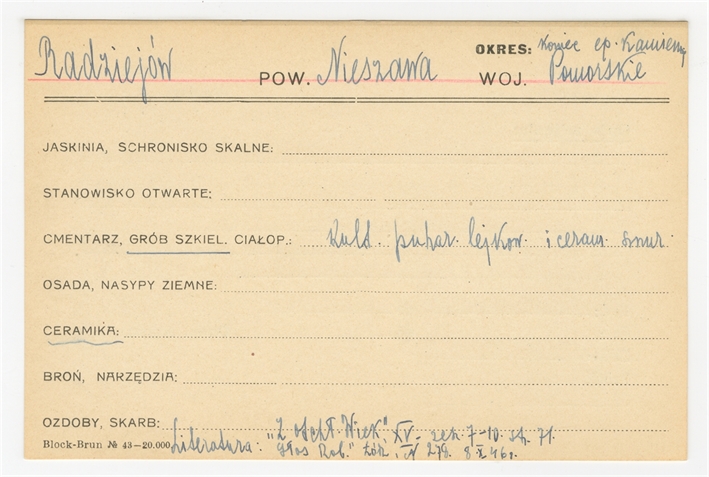 OKRES: Koniec ep. Kamienn
Radziejów POW. Nieszawa WOJ. Pomorskie
JASKINIA, SCHRONISKO SKALNE:
STANOWISKO OTWARTE:
CMENTARZ, GRÓB SZKIEL. CIAŁOP.: Kult. puhar. lejkow. i ceram. sznur.
OSADA, NASYPY ZIEMNE:
CERAMIKA:
BROŃ, NARZĘDZIA:
OZDOBY, SKARB:
Block-Brun № 43—20.000 Literatura: "Z otchł. Wiek", XV- zesz. 7-10. str. 71.
"Głos Rob." Łódź, N 278. 8 X 46 r.